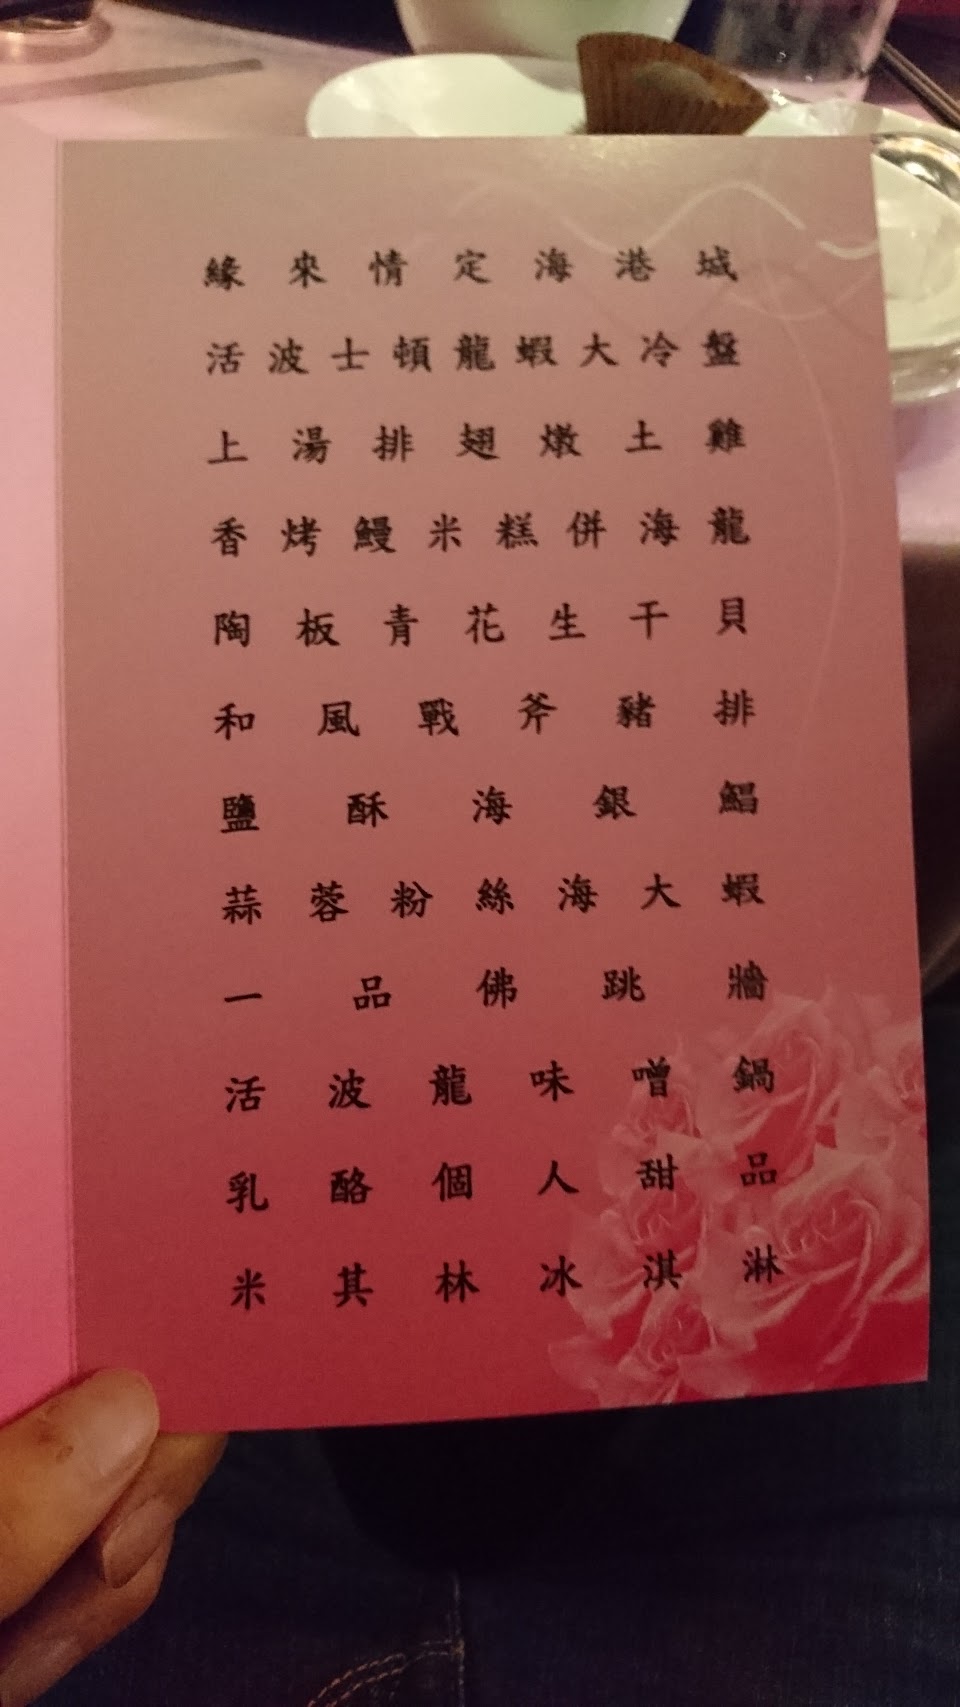 緣來情定海港城
活波士頓龍蝦大冷盤
上湯排翅燉土雞
香烤鰻米糕併海龍
陶板青花生干貝
和風戰斧豬排
鹽酥海銀鯧
蒜蓉粉絲海大蝦
一品佛跳牆
活波龍味噌鍋
乳酪個人甜品
米其林冰淇淋